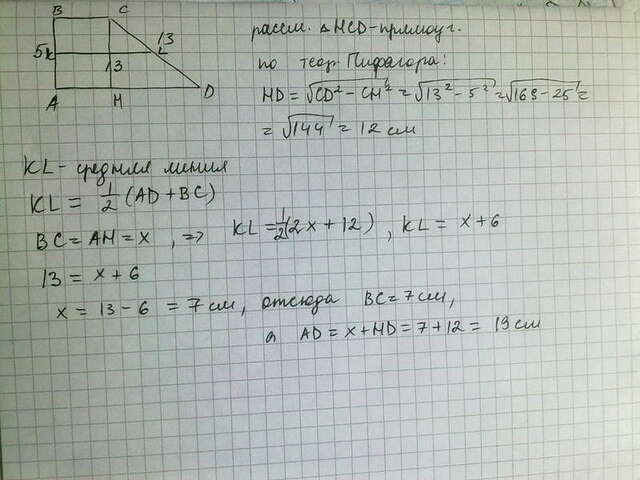 B C
13
5 K L
13
A H D
рассм. △HCD-прямоуг.
по теор Пифагора:
HD = √CD² - CH² = √13² - 5² = √169 - 25 =
= √144 = 12 см
KL - средняя линия
KL = 1/2 (AD + BC)
BC = AH = x , => KL = 1/2(2x + 12) , KL = x + 6
13 = x + 6
x = 13 - 6 = 7 см, отсюда BC = 7 см,
а AD = x + HD = 7 + 12 = 19 см